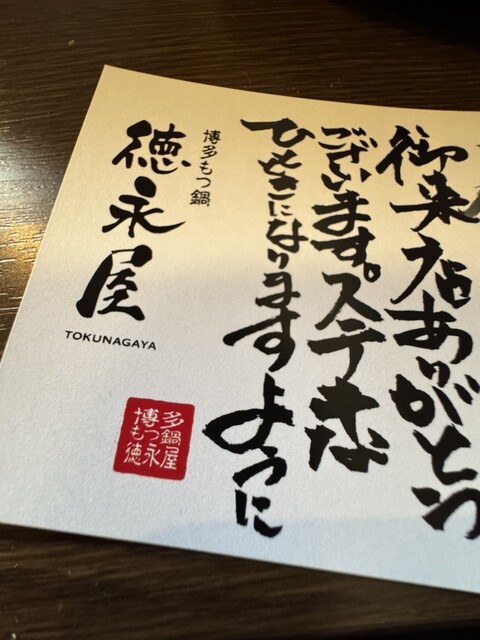 御来店ありがとう
ございます。ステキな
ひとときになりますように
博多もつ鍋
徳永屋
TOKUNAGAYA
博多
もつ鍋
徳永屋